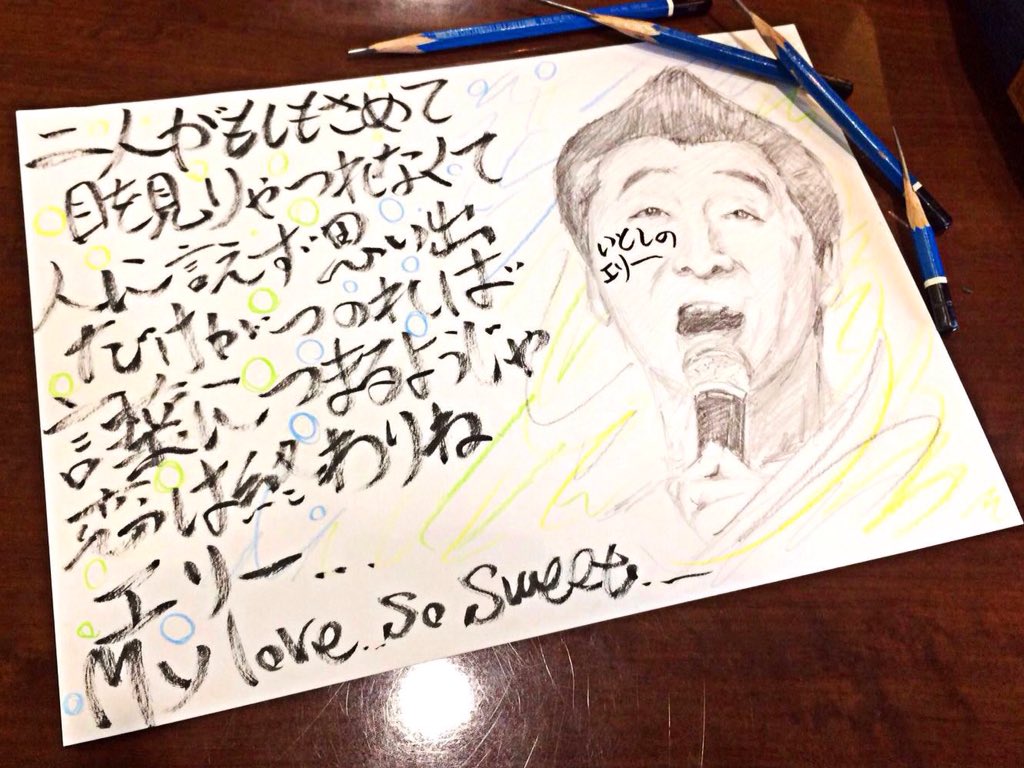 二人がもしもさめて
目を見りゃつれなくて
人に言えず思い出
だけがつのれば
言葉につまるようじゃ
恋は終わりね
エリー...
My love..so sweet...
いとしの
エリー